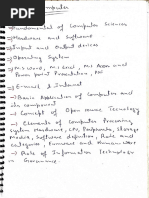 Computer
→Fundamental of Computer Sciences
→Hardware and Software
→Input and Output devices
→Operating System
→M.S Word, M.S Excel, M.S Axes and
Power point Presentation,
→E-mail & Internet
→Basic Application of Computer and
its component
→Concept of Open source Tecnology
→Elements of Computer Processing
System Hardware, CPU, Peripherals, Storage
Media, Software definition, Role and
categories, Firmware and Human ware
→Role of Information Technology
Governance.